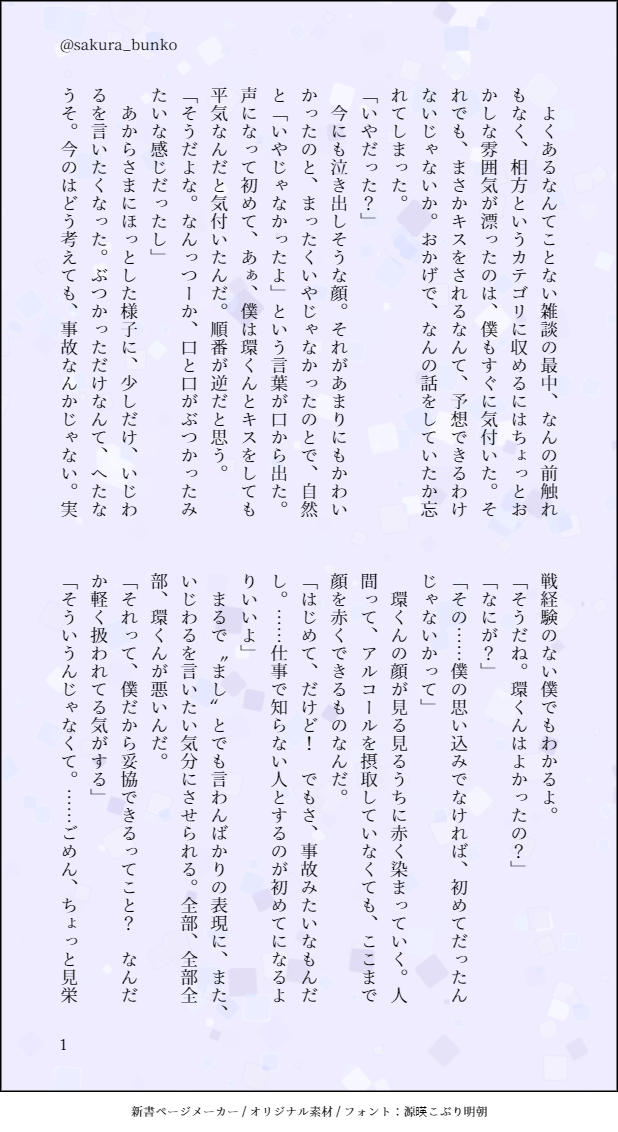 @sakura_bunko
　よくあるなんてことない雑談の最中、なんの前触れ
もなく、相方というカテゴリに収めるにはちょっとお
かしな雰囲気が漂ったのは、僕もすぐに気付いた。そ
れでも、まさかキスをされるなんて、予想できるわけ
ないじゃないか。おかげで、なんの話をしていたか忘
れてしまった。
「いやだった？」
　今にも泣き出しそうな顔。それがあまりにもかわい
かったのと、まったくいやじゃなかったのとで、自然
と「いやじゃなかったよ」という言葉が口から出た。
声になって初めて、あぁ、僕は環くんとキスをしても
平気なんだと気付いたんだ。順番が逆だと思う。
「そうだよな。なんっつーか、口と口がぶつかったみ
たいな感じだったし」
　あからさまにほっとした様子に、少しだけ、いじわ
るを言いたくなった。ぶつかっただけなんて、へたな
うそ。今のはどう考えても、事故なんかじゃない。実
戦経験のない僕でもわかるよ。
「そうだね。環くんはよかったの？」
「なにが？」
「その……僕の思い込みでなければ、初めてだったん
じゃないかって」
　環くんの顔が見る見るうちに赤く染まっていく。人
間って、アルコールを摂取していなくても、ここまで
顔を赤くできるものなんだ。
「はじめて、だけど！　でもさ、事故みたいなもんだ
し。……仕事で知らない人とするのが初めてになるよ
りいいよ」
　まるで〝まし〟とでも言わんばかりの表現に、また、
いじわるを言いたい気分にさせられる。全部、全部全
部、環くんが悪いんだ。
「それって、僕だから妥協できるってこと？　なんだ
か軽く扱われてる気がする」
「そういうんじゃなくて。……ごめん、ちょっと見栄
1
新書ページメーカー / オリジナル素材 / フォント：源暎こぶり明朝